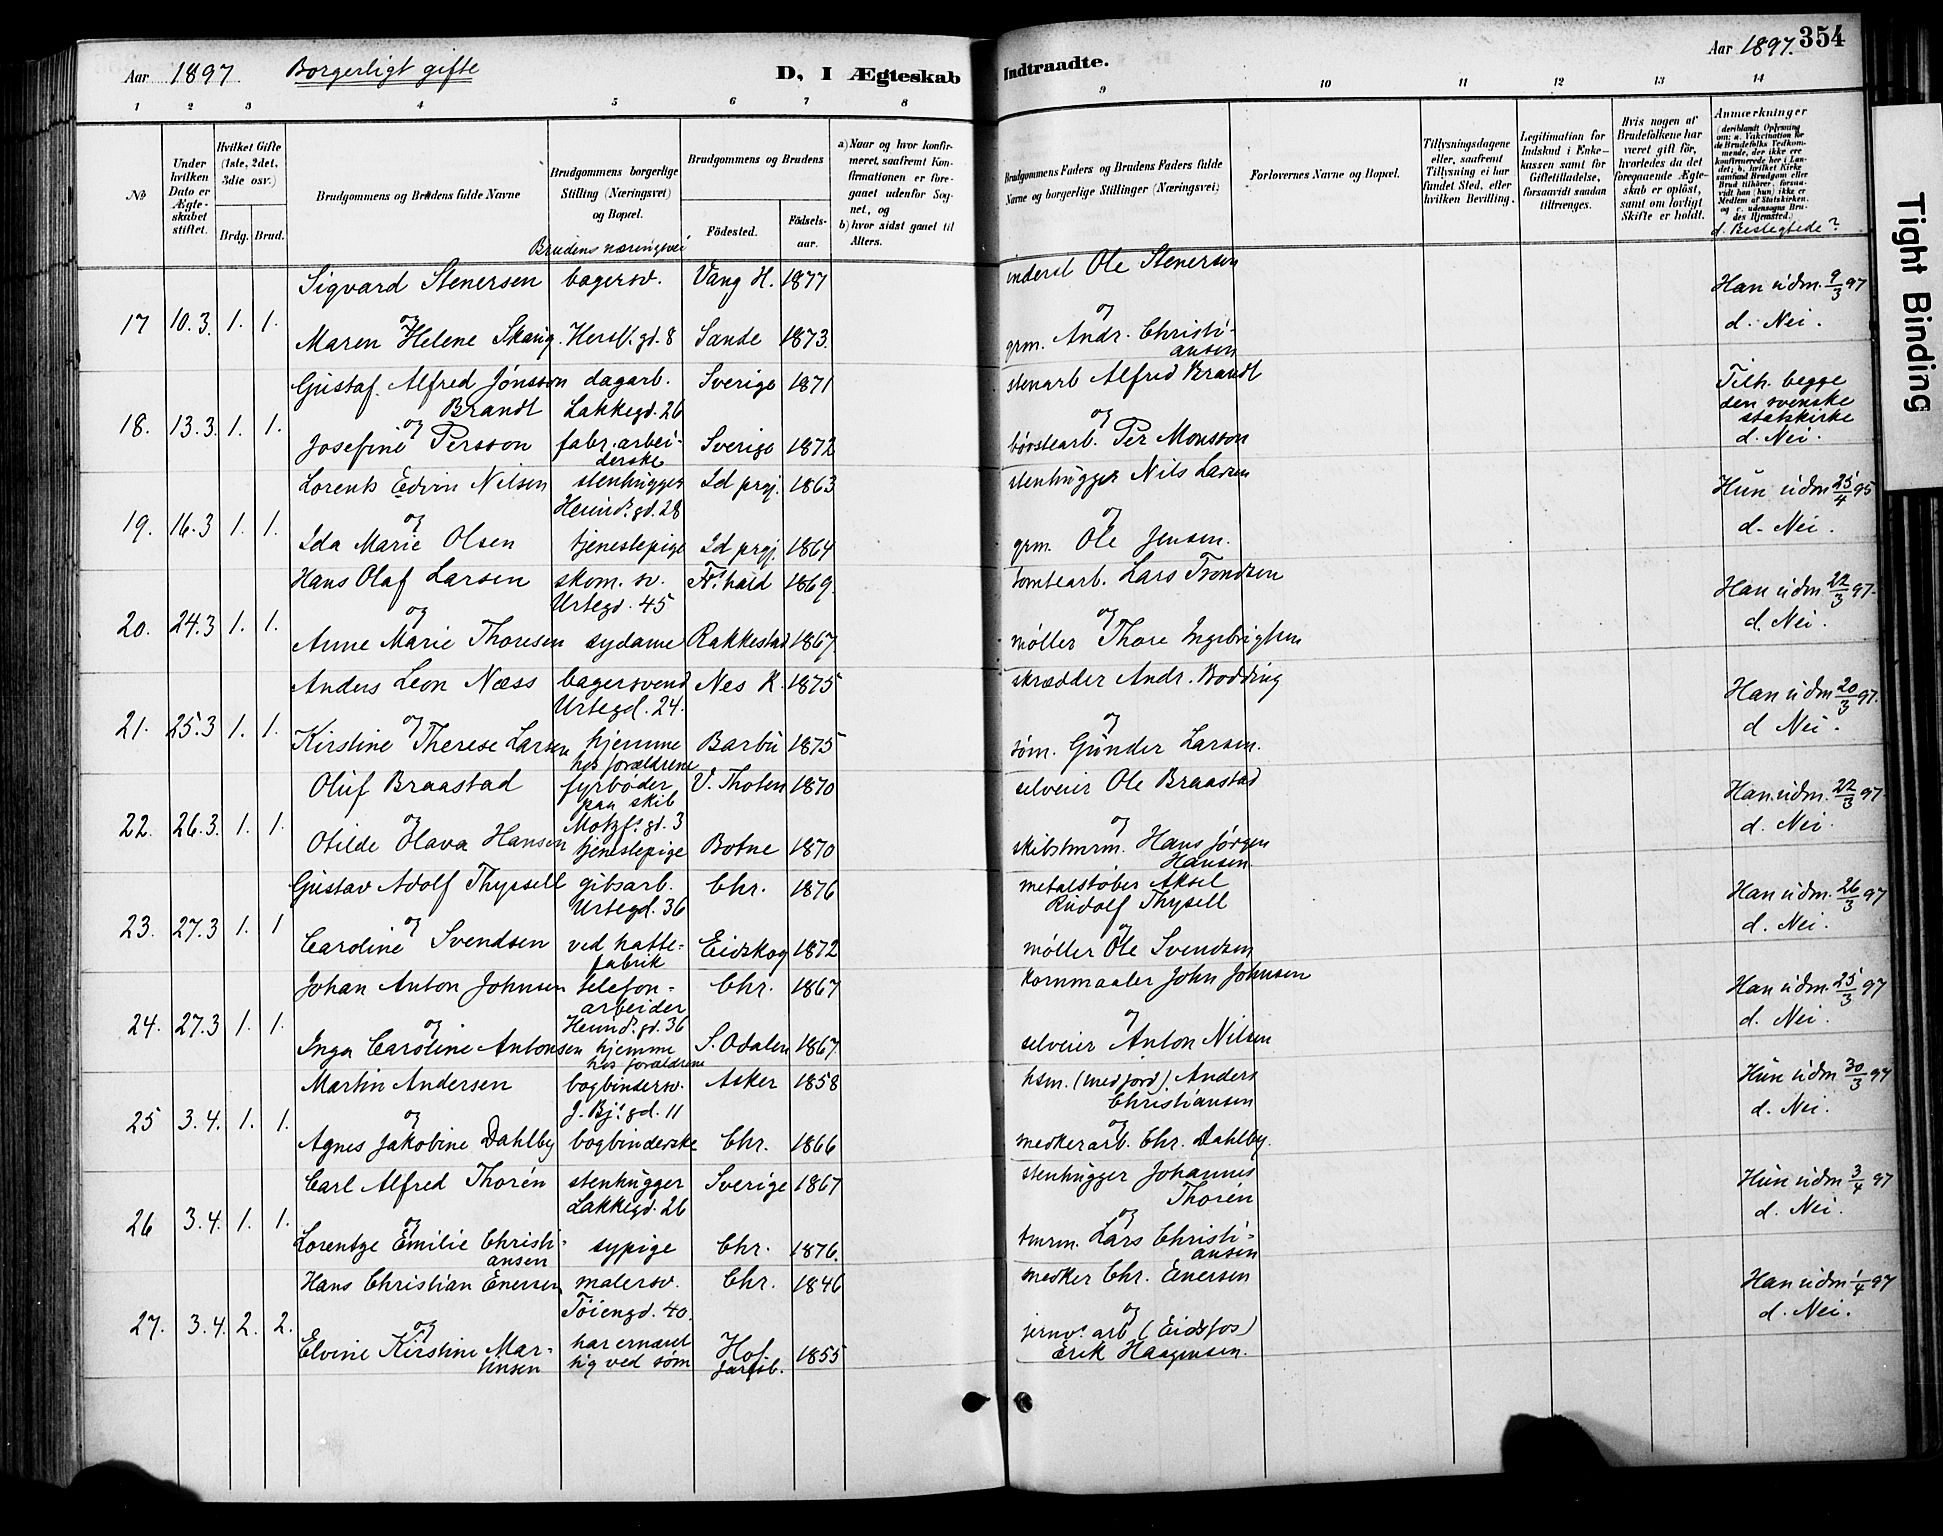 Aar 1897. Borgerligt gifte D, I Ægteskab
Indtraadte. Aar 1897. 354
1 2 3 4 5 6 7 8
9 10 11 12 13 14
No
Under hvilken Dato er Ægteskabet stiftet.
Hvilket Gifte (1ste, 2det, 3die osv.)
Brdg. Brud.
Brudgommens og Brudens fulde Navne
Brudgommens borgerlige Stilling (Næringsvei) og Bopæl.
Brudens næringsvei
Brudgommens og Brudens
Födested. Födsels-aar.
a) Naar og hvor konfirmeret, saafremt Konfirmationen er foregaaet udenfor Sognet, og
b) hvor sidst gaaet til Alters.
Brudgommens Faders og Brudens Faders fulde Navne og borgerlige Stillinger (Næringsvei)
Forlovernes Navne og Bopæl.
Tillysningsdagene eller, saafremt Tillysning ei har fundet Sted, efter hvilken Bevilling.
Legitimation for Indskud i Enkekassen samt for Giftetilladelse, forsaavidt saadan tiltrænges.
Hvis nogen af Brudefolkene har været gift før, hvorledes da det foregaaende Ægteskab er oplöst, samt om lovligt Skifte er holdt.
Anmærkninger (deriblandt Oplysning om: a. Vakcination for de Brudefolks Vedkommende, der ikke ere konfirmerede her i Landet; b. hvilket Kirkesamfund Brudgom eller Brud tilhörer, forsaavidt han (hun) ikke er Medlem af Statskirken, og c. udensogns Brudes Hjemsted.)
d. Beslegtede?
Sigvard Stenersen bagersv. Vang H. 1877 inderst Ole Stenersen Han udm. 9/3 97
17 10.3. 1. 1. og og d. Nei.
Maren Helene Skaug Hersl. gd. 8 Sande 1873. grm. Andr. Christiansen
Gustaf Alfred Jónsson Brandt dagarb. Lakkegd. 26 Sverige 1871 stenarb Alfred Brandt Tilh. begge den svenske statskirke
18. 13.3. 1. 1. og og d. Nei.
Josefine Persson fabr. arbeiderske Sverige 1872 børstearb. Per Monsson
Lorents Edvin Nilsen stenhugger Heimd.s gd. 28 Id prgj. 1863 stenhugger Nils Larsen Hun udm 25/4 95
19. 16.3 1. 1. og og d. Nei.
Ida Marie Olsen tjenestepige Id prgj. 1864 grm. Ole Jensen.
Hans Olaf Larsen skom. sv. Urtegd. 45 Fr.hald 1869. tomtearb. Lars Trondsen Han udm. 22/3 97.
20. 24.3 1. 1. og og d. Nei.
Anne Marie Thoresen sydame Rakkestad 1867 møller Thore Ingebrigtsen
Anders Leon Næss bagersvend Urtegd. 24. Nes R. 1875 skrædder Andr. Bodding Han udm 20/3 97.
21. 25.3 1. 1. og og d Nei.
Kirstine Therese Larsen hjemme hos forældrene Barbu 1875 søm. Gunder Larsen.
Oluf Braastad fyrbøder paa skib Motzf.s gd. 3 V. Thoten 1870 selveier Ole Braastad Han udm. 22/3 97.
22. 26.3. 1. 1. og og d. Nei.
Otilde Olava Hansen tjenestepige Botne 1870 skibstmrm. Hans Jørgen Hansen.
Gustav Adolf Thysell gibsarb. Urtegd. 36 Chr. 1876 metalstøber Aksel Rudolf Thysell Han udm. 26/3 97
23. 27.3 1. 1 og og d. Nei.
Caroline Svendsen ved hattefabrik Eidskog 1872 møller Ole Svendsen
Johan Anton Johnsen telefonarbeider Heimd.s gd. 36 Chr. 1867 kornmaaler John Johnsen Han udm. 25/3 97
24. 27.3 1. 1. og og d. Nei.
Inga Caroline Antonsen hjemme hos forældrene S. Odalen 1867. selveier Anton Nilsen
Martin Andersen bogbindersv. J. Bj.s gd. 11 Asker 1858 hsm. (med jord) Anders Christiansen Hun udm 30/3 97
25 3.4. 1. 1. og og d. Nei.
Agnes Jakobine Dahlby bogbinderske Chr. 1866 meskerarb. Chr. Dahlby.
Carl Alfred Thorén stenhugger Lakkegd. 26 Sverige 1867 stenhugger Johannes Thorén Hun udm 3/4 97
26 3.4. 1. 1. og og d. Nei.
Lorentze Emilie Christiansen sypige Chr. 1876. tmrm. Lars Christiansen
Hans Christian Enersen malersv. Töiengd. 40. Chr. 1846 mesker Chr. Enersen Han udm 1/4 97
27. 3.4. 2. 2. og og d. Nei.
Elvine Kirstine Martinsen har ernæret sig ved søm Hof Jarlsb. 1855 jernv.s arb (Eidsfos) Erik Haagensen.
Tight Binding